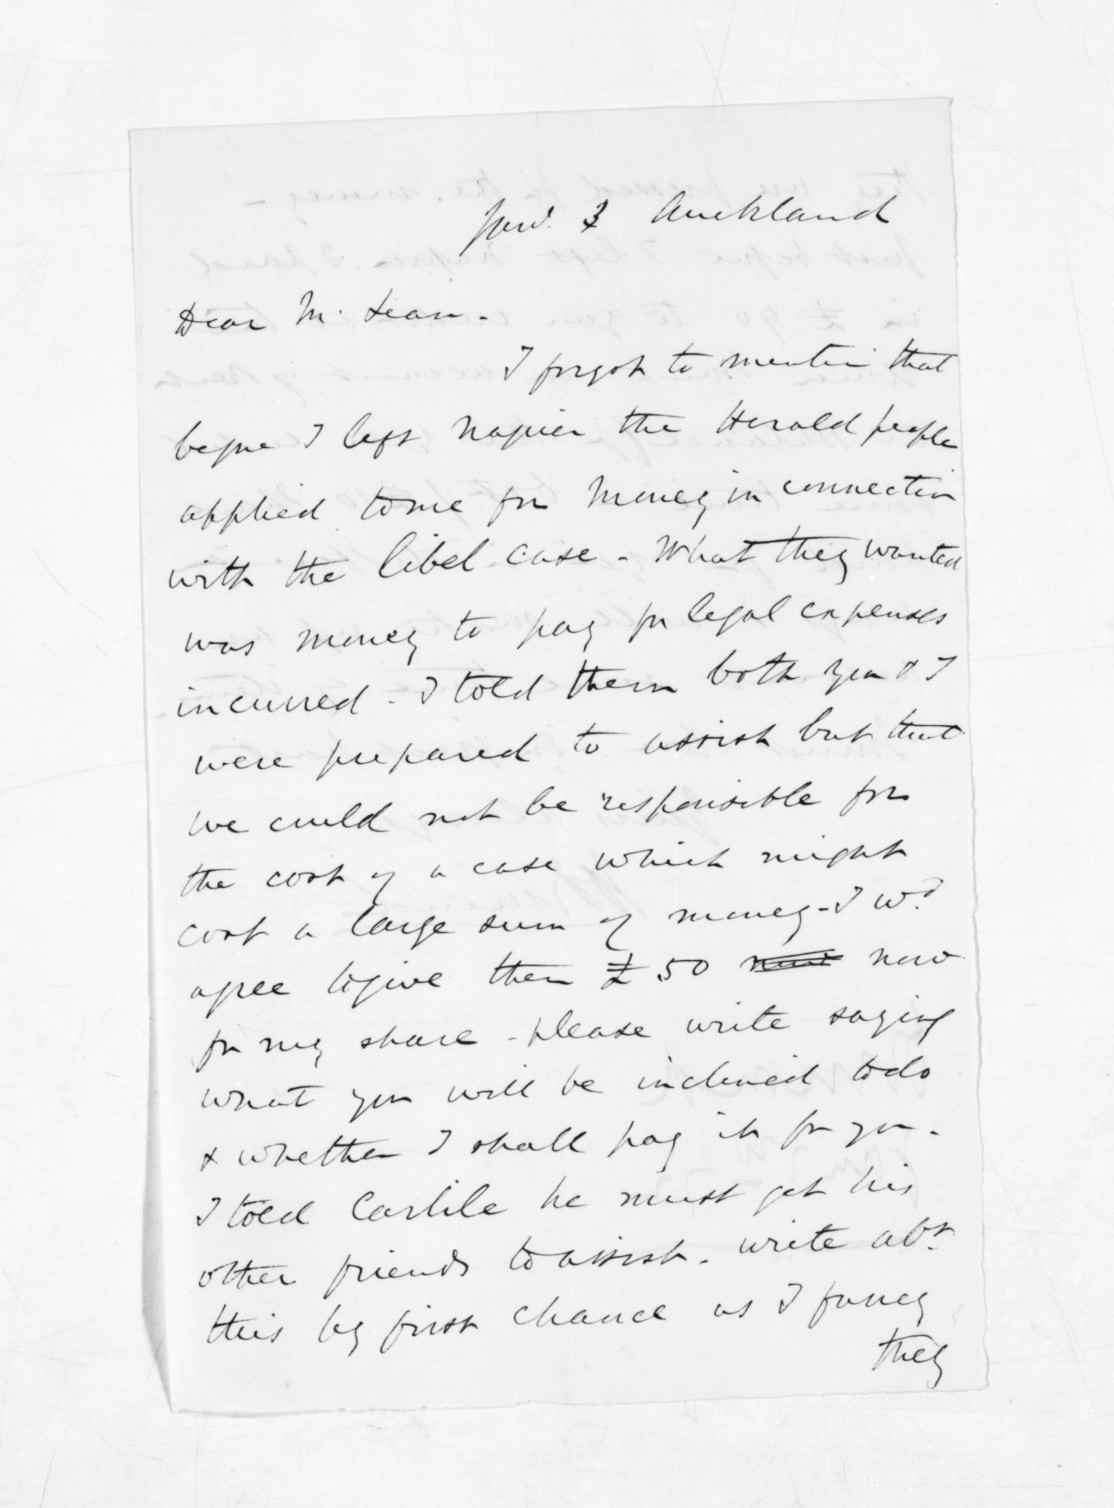 Auckland
Dear McLean -
I forgot to mention that
before I left Napier the Herald people
applied to me for money in connection
with the libel case - What they wanted
was money to pay for legal expenses
incurred - I told them both you & I
were prepared to assist but that
we could not be responsible for
the cost of a case which might
cost a large sum of money - I wd
agree to give them £50 now
for my share - please write saying
what you will be inclined to do
& whether I shall pay it for you -
I told Carlile he must get his
other friends to assist - write abt
this by first chance as I fancy
they